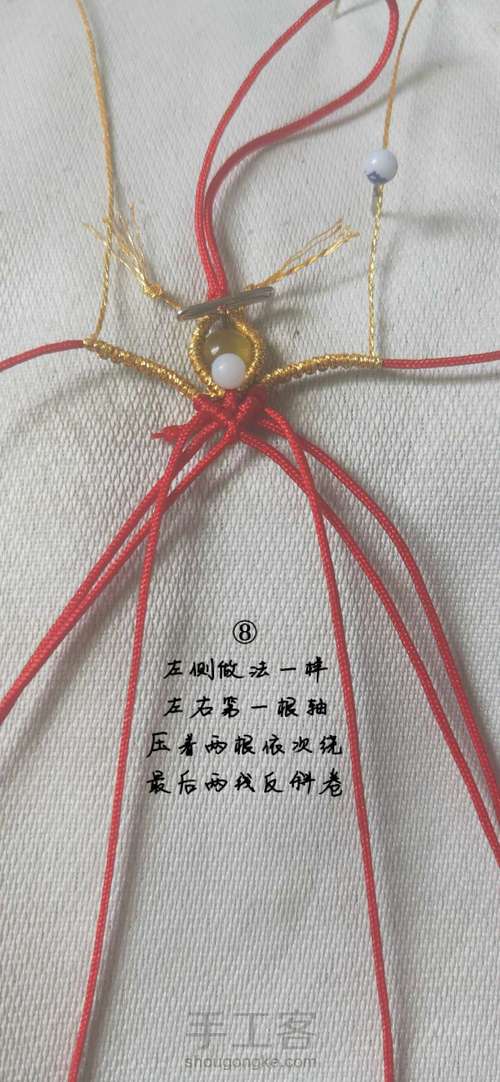 ⑧
左侧做法一样
左右第一根轴
压着两根依次绕
最后两线反斜卷
手工客
shougongke.com